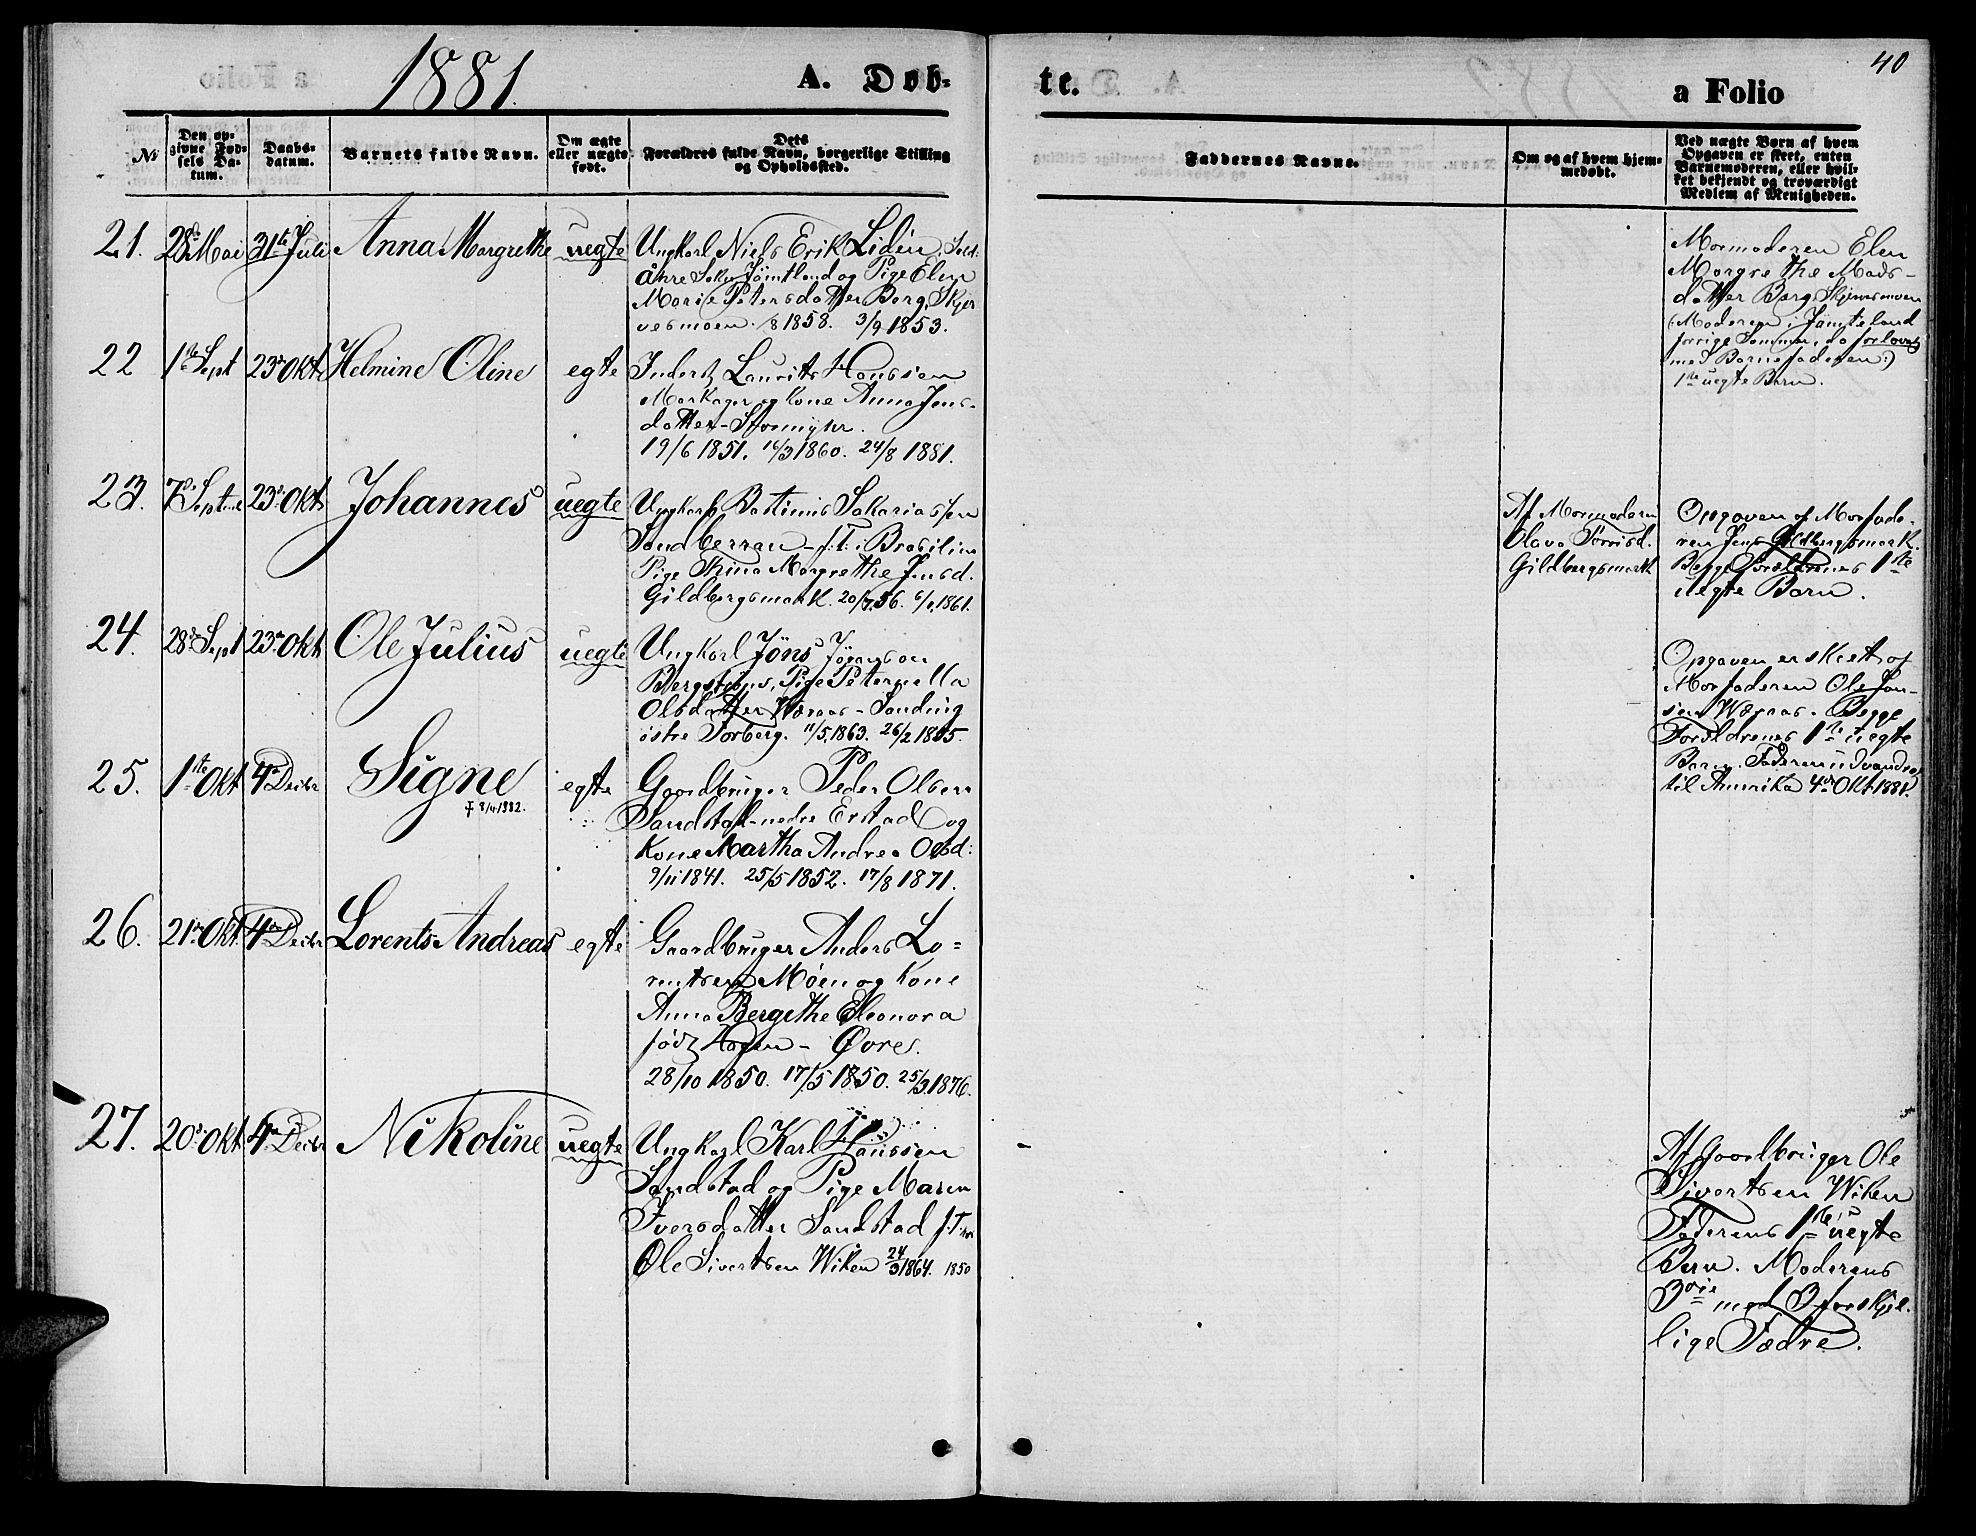 1881.
A. Døb-
te.
a Folio
40
No
Den op-
givne Fød-
sels Da-
tum.
Daabs-
datum.
Barnets fulde Navn.
Om ægte
eller uægte
født.
Dets
Forældres fulde Navn, borgerlige Stilling
og Opholdssted.
Faddernes Navne.
Om og af hvem hjem-
medøbt.
Ved uægte Børn af hvem
Opgaven er skeet, enten
Barnemoderen, eller hvil-
ket bekjendt og troværdigt
Medlem af Menigheden.
21. 28de Mai 31te Juli Anna Margrethe uegte
Ungkarl Niels Erik Lidén, Sold:
Åhre Sokn Jämtland og Pige Elen
Marie Petersdatter Berg, Skjer
vesmoen. /8 1858. 3/9 1853.
Mormoderen Elen
Margrethe Mads-
datter Berg, Skjervesmoen
(Moderen i Jämteland
forrige Sommer, da forlovet
med Barnefaderen:)
1ste uegte Barn.
22 1ste Sept 23de Okt Helmine Oline egte
Inderst Laurits Hanssen
Markager og Kone Anna Jens-
datter -
19/6 1851. 16/3 1860. 24/8 1881.
23. 7de Septbr 23de Okt. Johannes uegte
Ungkarl Bastinus Sakariassen
Sandberran - f:t: i Brasilien
Pige Stina Margrethe Jensd.
Gildbergsmark. 20/7 56. 6/ 1861.
Af Mormoderen
Olava Torrisd.
Gildbergsmark
Opgaven af Morfade-
ren Jens Gildbergsmark.
Begge Forældrenes 1ste
uegte Barn.
24. 28de Sept 23de Okt. Ole Julius uegte
Ungkarl Jöns Jöransson
Bergströms, Pige Peternella
Olsdatter Wæraas - Sanding
østre Forberg. 11/5 1863. 26/2 1855.
Opgaven er skeet af
Morfaderen Ole Jon-
sen Wæraas. Begge
Forældrenes 1ste uegte
Barn. Faderen udvandret
til Amerika 4de Okt. 1881.
25. 1ste Okt 4de Decbr Signe
† 8/4 1982.
egte
Gaardbruger Peder Olsen
Sandstad - nedre Erstad og
Kone Martha Andrea Olsd:
9/11 1841. 25/5 1852. 17/8 1871.
26. 21de Okt. 4de Decbr Lorents Andreas egte
Gaardbruger Anders Lo=
rentsen Møen og Kone
Anna Bergithe Eleonora
født Hagen - Øvre.
28/10 1850. 17/5 1850. 25/3 1876.
27. 20de Okt 4de Decbr Nikoline uegte
Ungkarl Karl Hanssen
Sandstad og Pige Maren
Iversdatter Sandstad f:T. hos
Ole Sivertsen Wiken 24/3 1864. 1850
Af Gaardbruger Ole
Sivertsen Wiken
Faderens 1ste uegte
Barn. Moderens
3die med 3 forskjel-
lige Fædre.